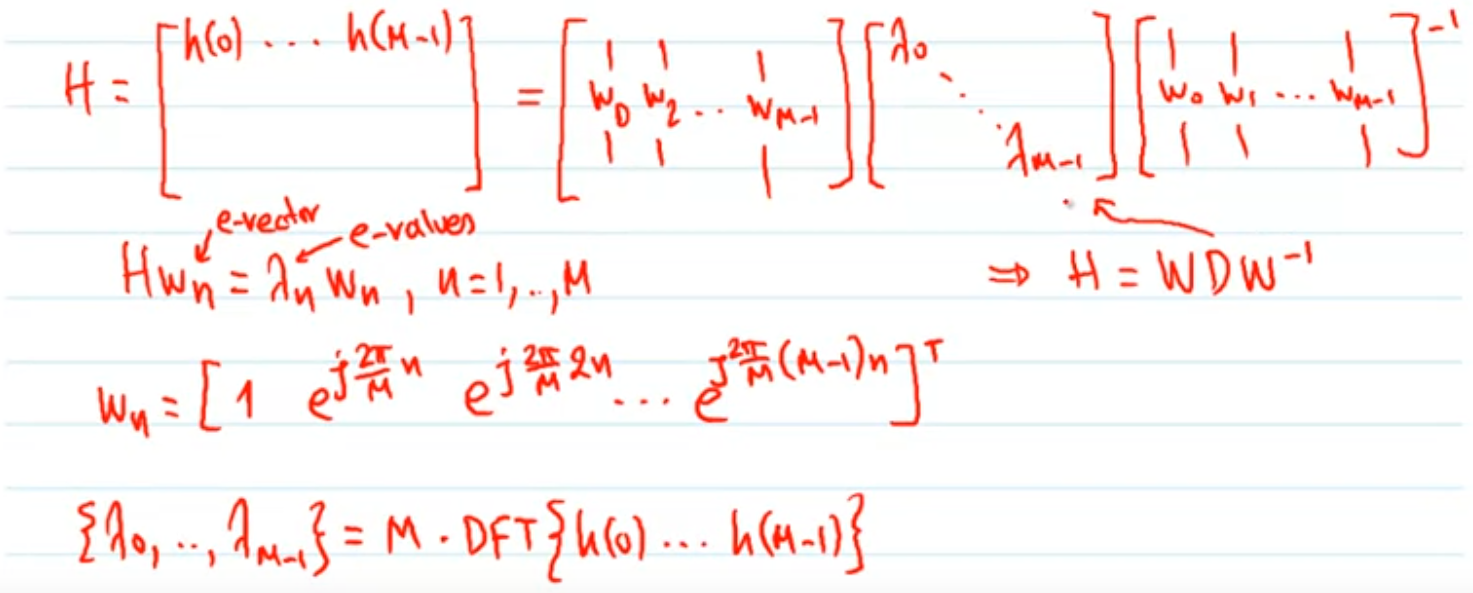 H = [h(0) ... h(M-1)] = [w₀ w₂ ... w_M-1] [λ₀ ⋱ λ_M-1] [w₀ w₁ ... w_M-1]⁻¹
e-vector
e-values
Hwₙ = λₙ wₙ , n=1,..,M ⇒ H = WDW⁻¹
wₙ = [1 e^{j 2π/M n} e^{j 2π/M 2n} ... e^{j 2π/M (M-1)n}]ᵀ
{λ₀, .., λ_M-1} = M · DFT{h(0) ... h(M-1)}